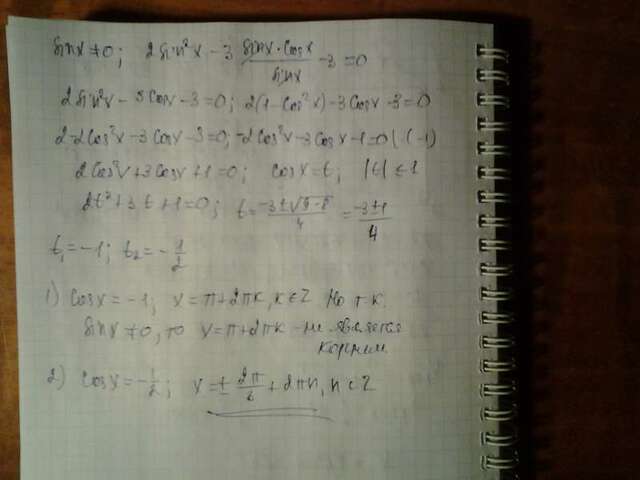 sin x ≠ 0; 2 sin²x - 3 (sin x · cos x)/(sin x) - 3 = 0
2 sin²x - 3 cos x - 3 = 0; 2(1 - cos²x) - 3 cos x - 3 = 0
2 - 2cos²x - 3 cos x - 3 = 0; -2cos²x - 3 cos x - 1 = 0 | (-1)
2 cos²x + 3 cos x + 1 = 0; cos x = t; |t| ≤ 1
2t² + 3t + 1 = 0; t = (-3 ± √9-8)/4 = (-3 ± 1)/4
t₁ = -1; t₂ = -1/2
1) cos x = -1; x = π + 2πk, k ∈ Z Но т.к.
sin x ≠ 0, то x = π + 2πk - не является
корнем
2) cos x = -1/2; x = ± 2π/ + 2πn, n ∈ Z